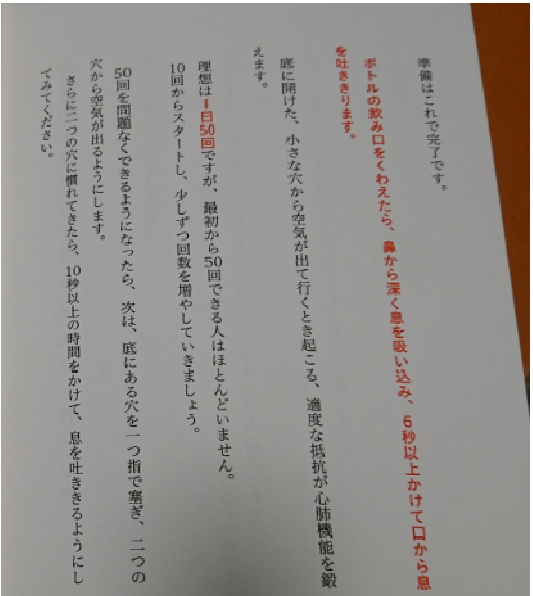 準備はこれで完了です。
ボトルの飲み口をくわえたら、鼻から深く息を吸い込み、6秒以上かけて口から息
を吐ききります。
底に開けた、小さな穴から空気が出て行くとき起こる、適度な抵抗が心肺機能を鍛
えます。
理想は1日50回ですが、最初から50回できる人はほとんどいません。
10回からスタートし、少しずつ回数を増やしていきましょう。
50回を問題なくできるようになったら、次は、底にある穴を一つ指で塞ぎ、二つの
穴から空気が出るようにします。
さらに二つの穴に慣れてきたら、10秒以上の時間をかけて、息を吐ききるようにし
てみてください。